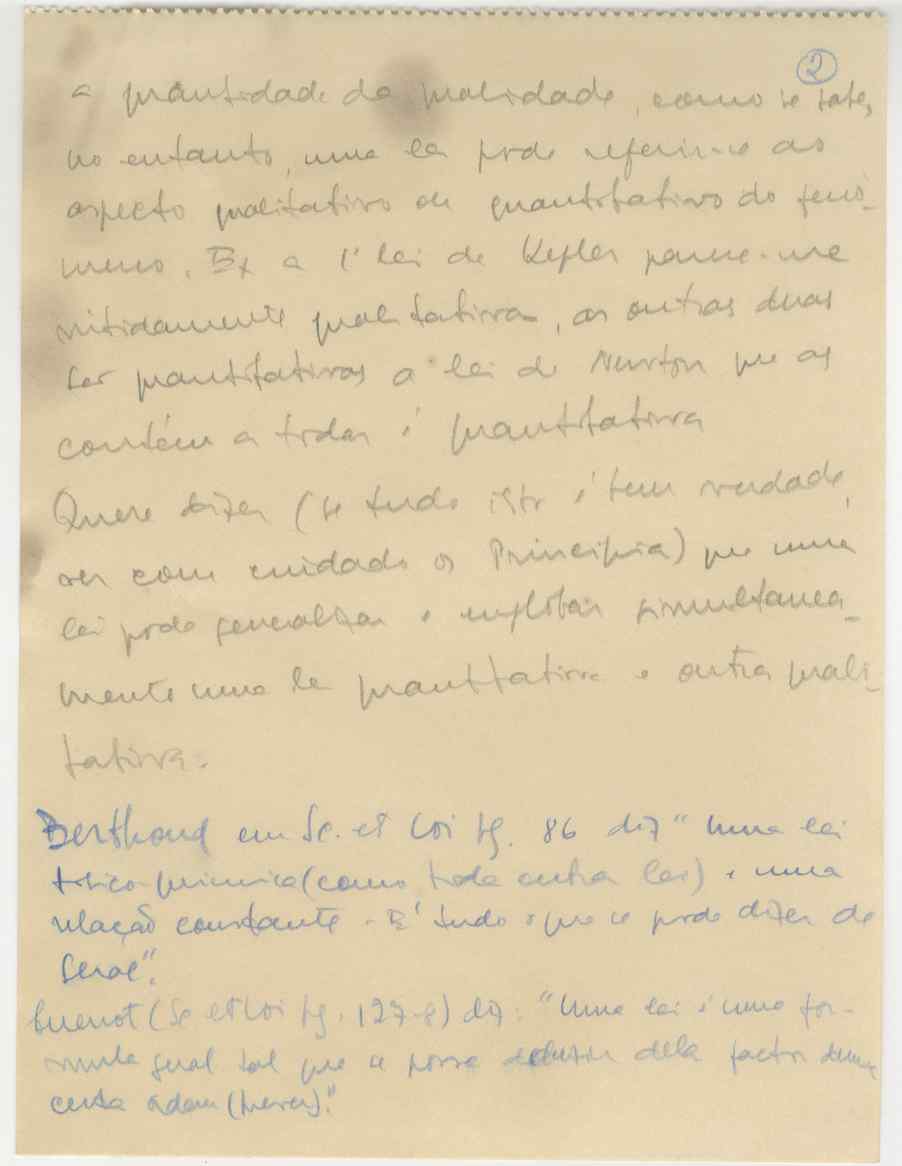 2
a quantidade da qualidade, como se sabe,
no entanto, uma lei pode referir-se ao
aspecto qualitativo ou quantitativo do fenó-
meno. Ex a 1ª lei de Kepler parece-me
nitidamente qualitativa, as outras duas
são quantitativas a lei de Newton que as
contém a todas é quantitativa
Quere dizer (se tudo isto é bem verdade,
ver com cuidado os Principia) que uma
lei pode generalizar e englobar simultanea-
mente uma lei quantitativa e outra quali-
tativa.
Berthoud em Sc. et Loi pg. 86 diz "Uma lei
físico-química (como toda outra lei) é uma
relação constante. É tudo o que se pode dizer de
geral".
Cuenot (Sc et Loi pg. 127-8) diz: "Uma lei é uma fór-
mula geral tal que se possa deduzir dela factos duma
certa ordem (prever)."